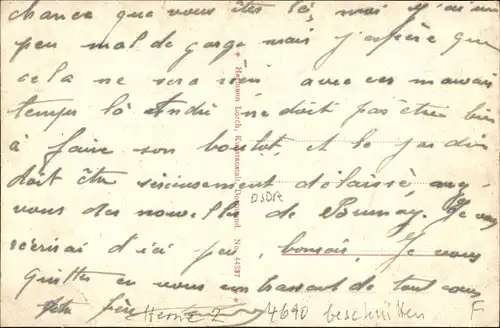 chance que vous êtes là, moi j'ai un
peu mal de gorge mais j'espère que
cela ne sera rien avec ces mauvais
temps là André ne doit pas être bien
à faire son boulot, et le jardin
doit être sérieusement délaissé, avez
vous des nouvelles de Bunnay. Je vous
écrirai d'ici peu, bonsoir, Je vous
quitte en vous embrassant de tout cœur
Hermann Lorch, Kunstanstalt, Dortmund
No. 44237
DJDA
4690 beschnitten F